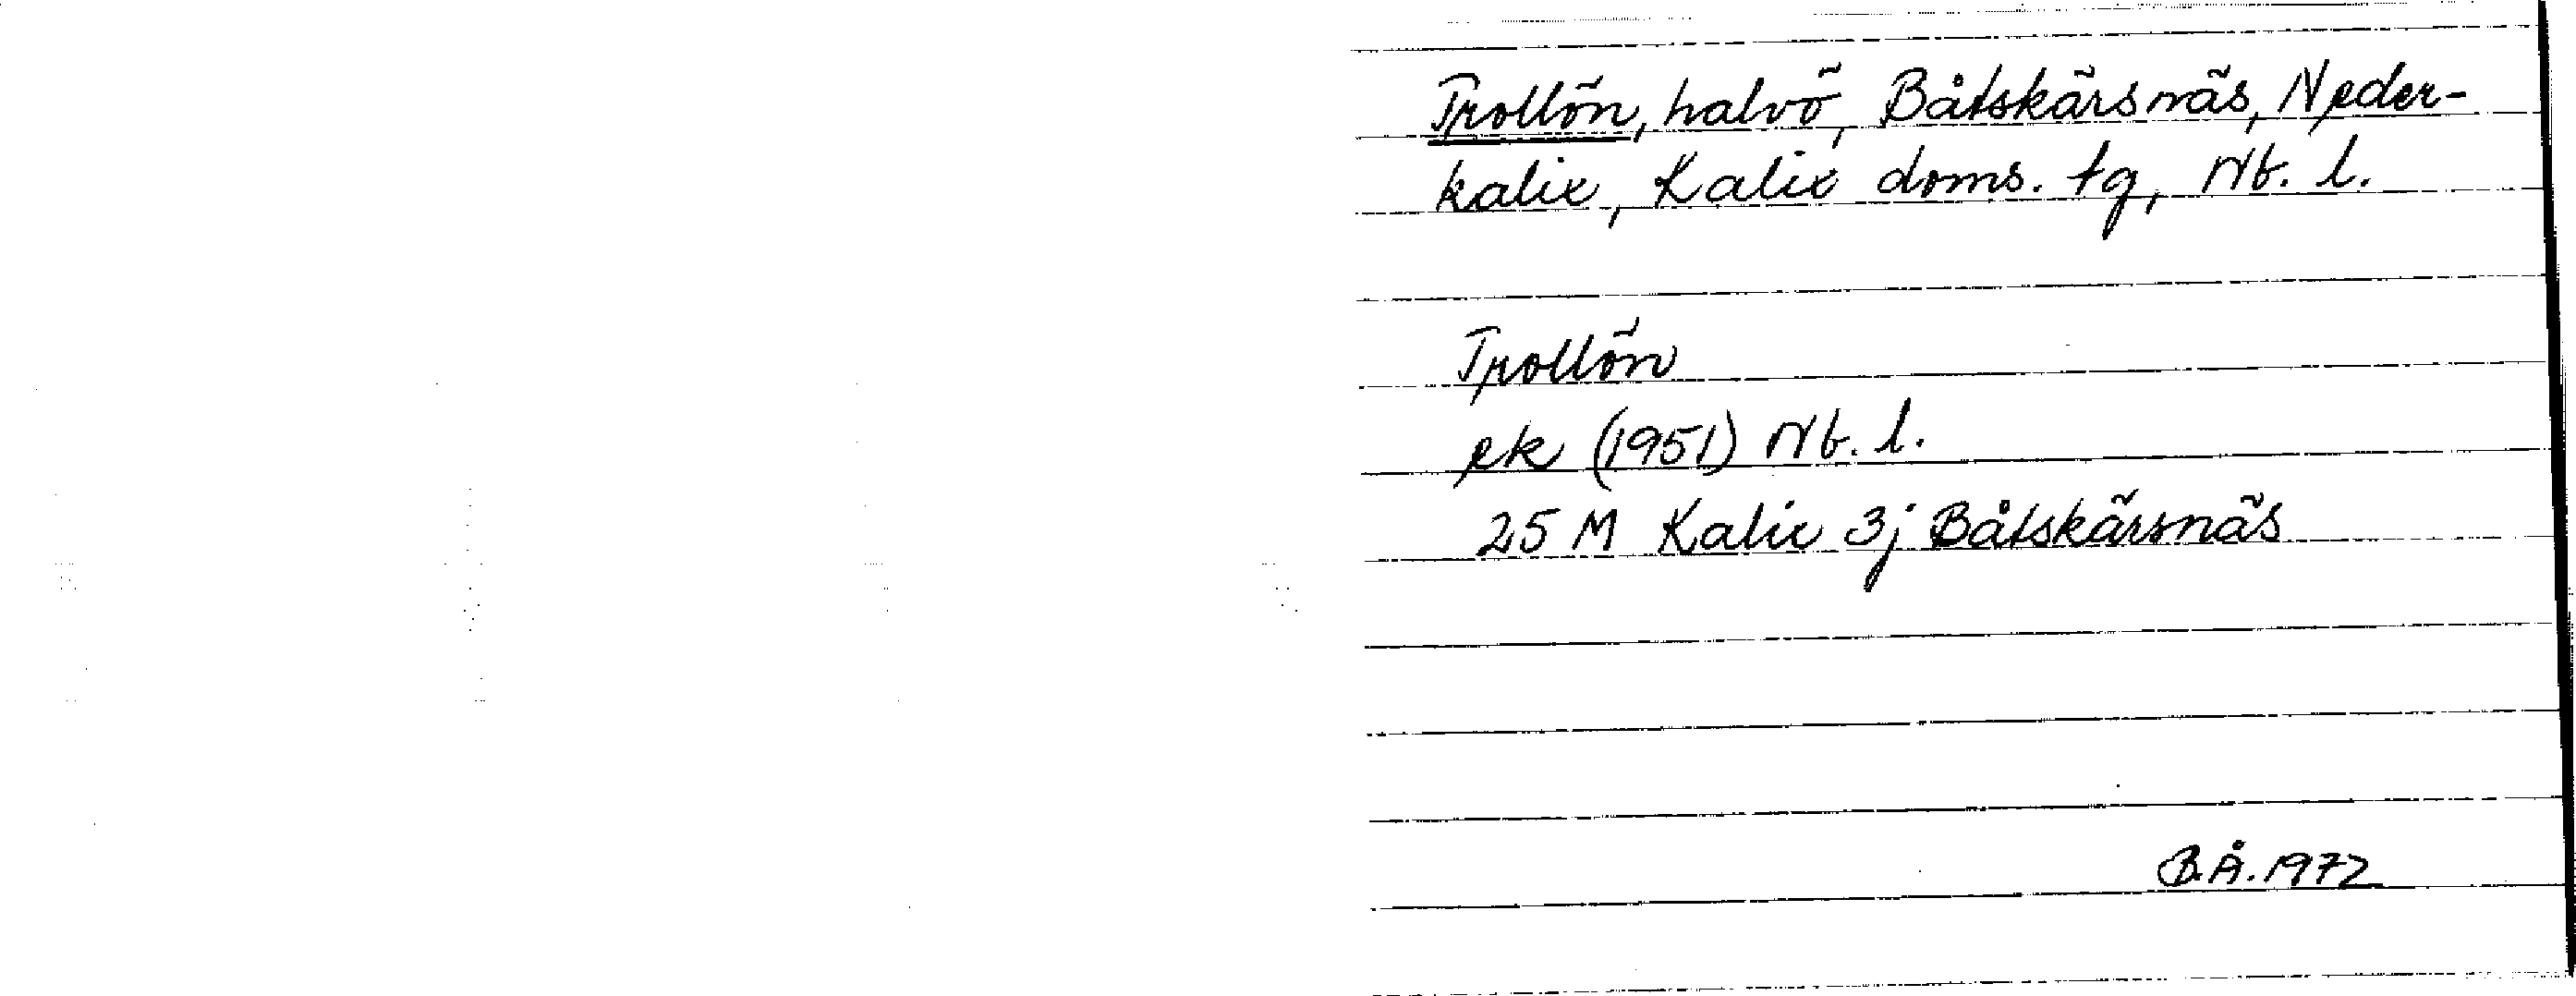 Trollön, halvö, Båtskärsnäs, Neder-
kalix, Kalix doms. tg, Nb. l.
Trollön
ek (1951) Nb. l.
25 M Kalix 3j Båtskärsnäs
B.Å. 1972